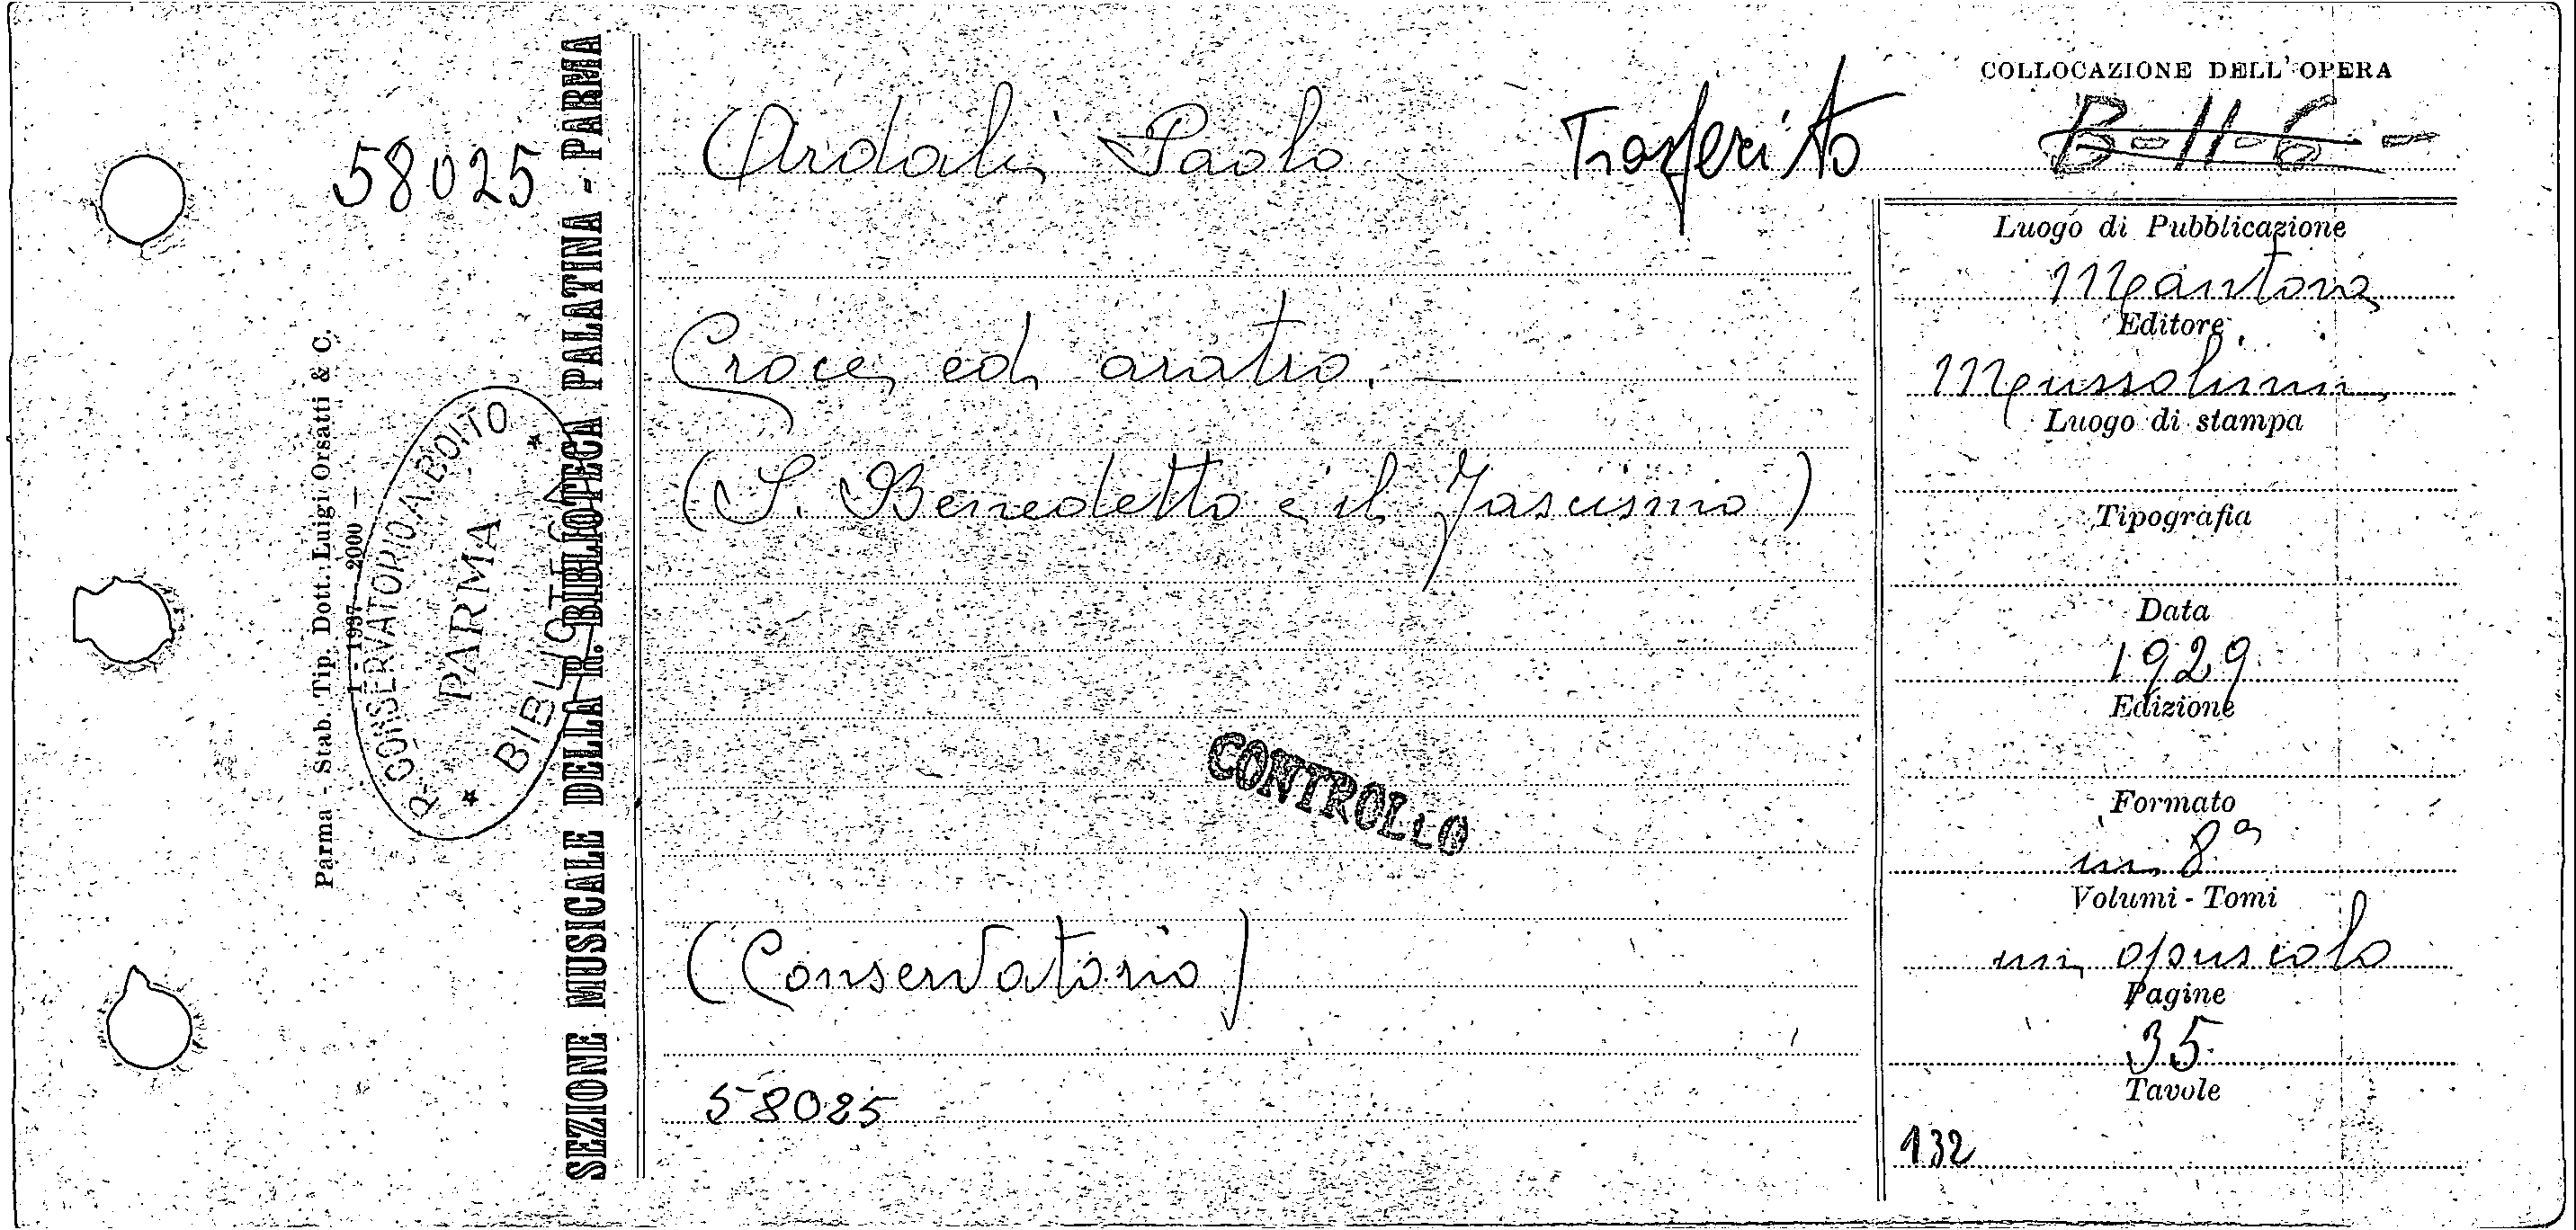 58025
Parma - Stab. Tip. Dott. Luigi Orsatti & C.
1 - 1937 - 2000 -
R. CONSERVATORIO A. BOITO
PARMA
BIBLIOTECA
SEZIONE MUSICALE DELLA R. BIBLIOTECA PALATINA - PARMA
Ardali Paolo
Trasferito
Croce ed aratro. -
(S. Benedetto e il Fascismo)
CONTROLLO
(Conservatorio)
58025
COLLOCAZIONE DELL'OPERA
B-II-6-
Luogo di Pubblicazione
Mantova
Editore
Mussolinia
Luogo di stampa
Tipografia
Data
1929
Edizione
Formato
in 8°
Volumi - Tomi
un opuscolo
Pagine
35
Tavole
132